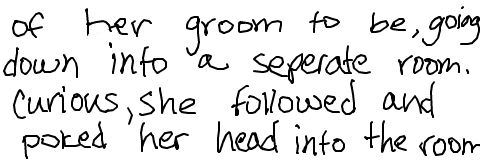 of her groom to be, going
down into a seperate room.
Curious, she followed and
poked her head into the room